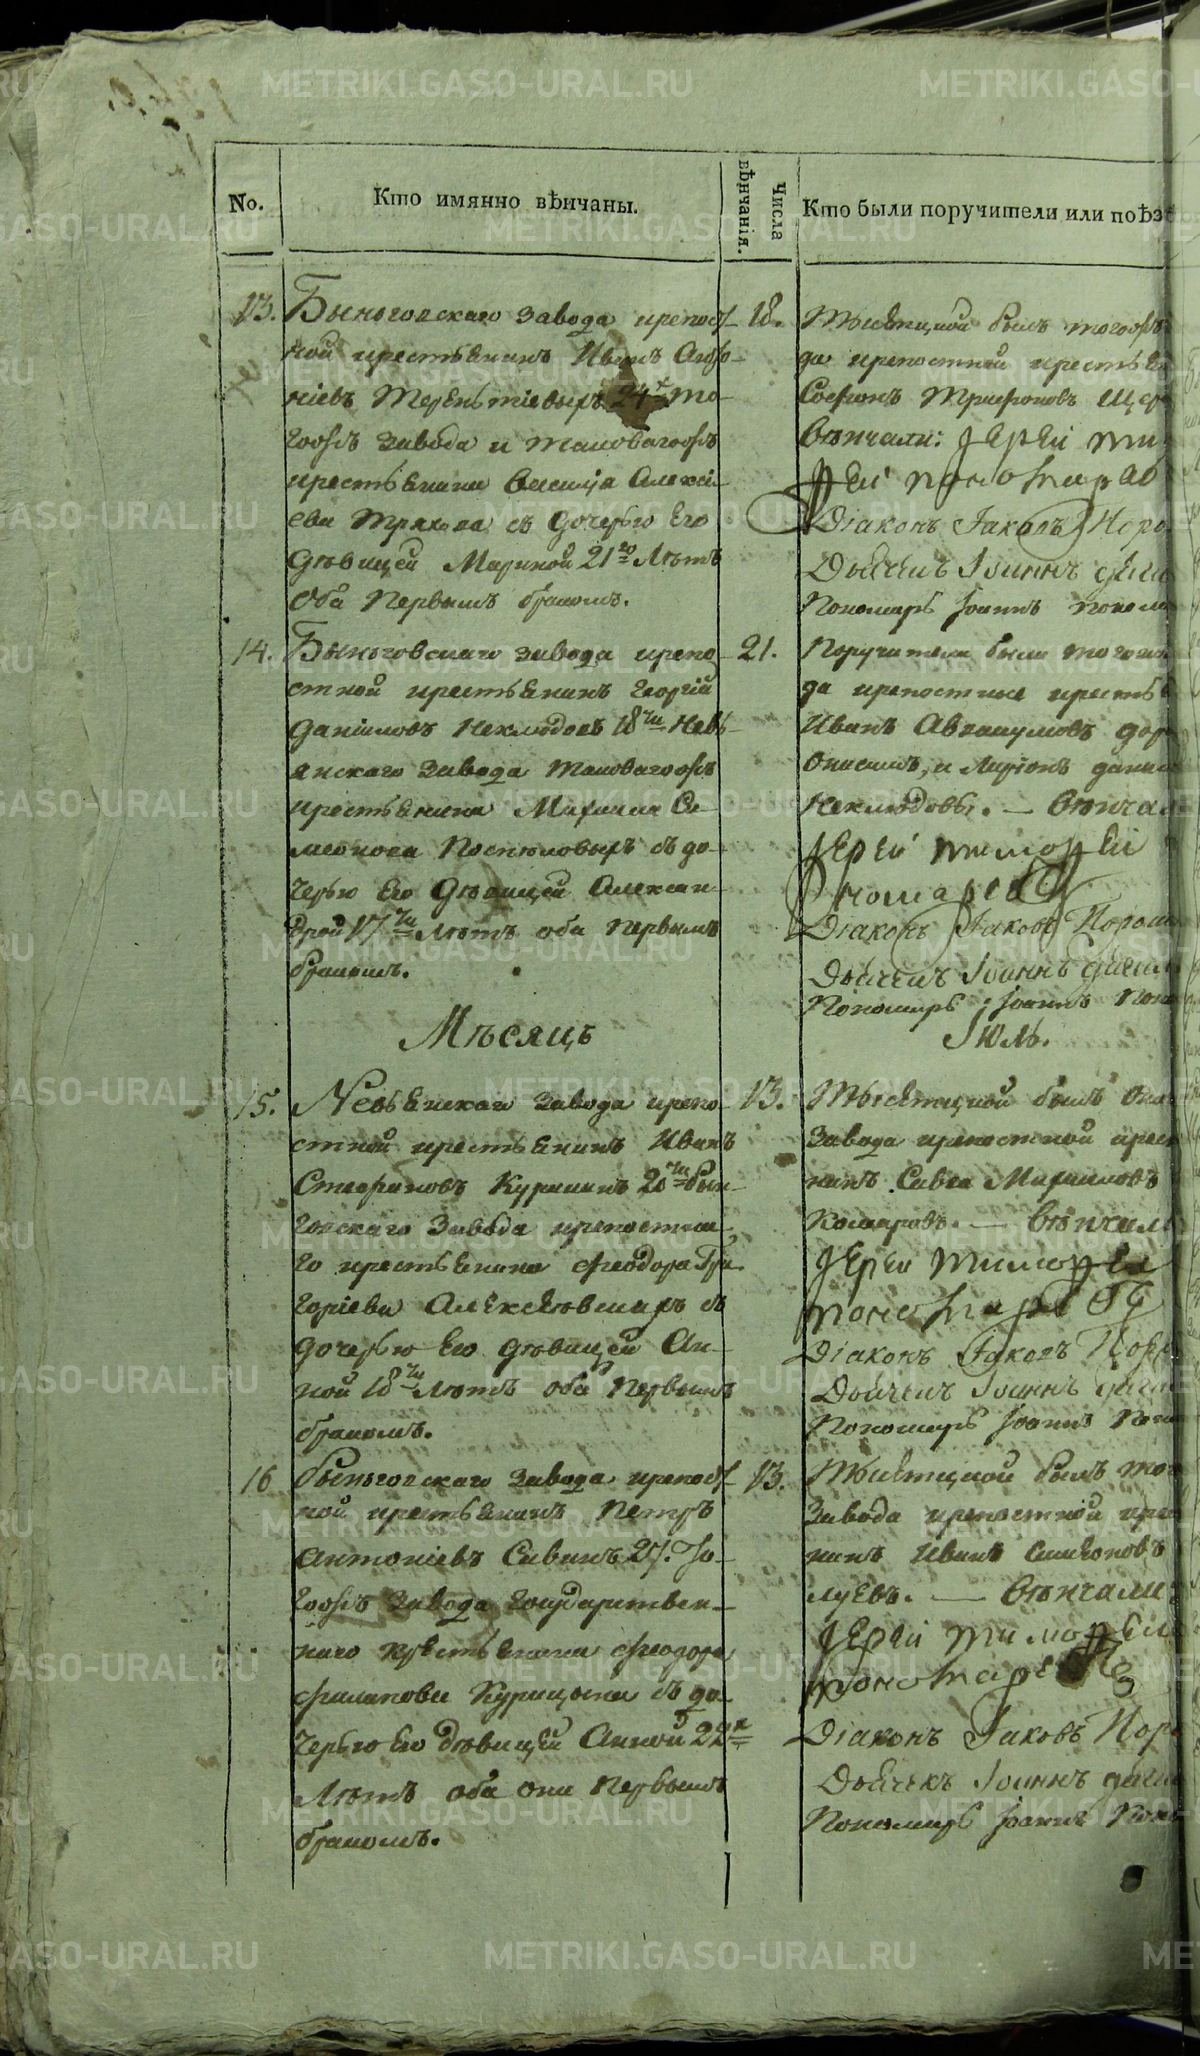 No.
Кто имянно вѣнчаны.
Числа вѣнчанія.
Кто были поручители или поѣз
13.
Быньговскаго завода крѣпост
ной крестьенинъ Иванъ
ніевъ Терентіевыхъ 24х то
гоожъ завода и таковагоожъ
крестьенина Алексі
ева съ дочерью его
дѣвицей Мариной 21го лѣтъ
оба первымъ бракомъ.
18.
Тысяцкой былъ тогоожъ
да крепостной крестье
Софронъ Трифоновъ Щер
Вѣнчали: Іерей Ти
фей Пономарев
Діаконъ Іаковъ Поро
Дьячекъ Іоаннъ
Пономарь Іоаннъ Поном
14.
Быньговскаго завода крепо
стной крестьенинъ Георгій
Даніиловъ Неклюдовъ 18ти Невь
янскаго завода таковагоожъ
крестьенина Михаила Си
меонова Поспѣловыхъ съ до
черью его дѣвицей Алексан
дрой 17ти лѣтъ оба первымъ
бракомъ.
21.
Поручители были тогоож
да крепостные крестье
Иванъ Аввакумовъ
и Ларіонъ Дани
Неклюдовы. — Вѣнчал
Іерей Тимофей
Пономаревъ
Діаконъ Іаковъ Поро
Дьячекъ Іоаннъ
Пономарь Іоаннъ Пон
Мѣсяцъ
Іюль.
15.
Невьенскаго завода крепо
стной крестьенинъ Иванъ
Стефановъ 20ти Бын
говскаго завода крепостна
го крестьенина Феодора Гри
горіева Алексѣевскихъ съ
дочерью его дѣвицей Ан
ной 18ти лѣтъ оба первымъ
бракомъ.
13.
Тысяцкой былъ
завода крепостной крес
нинъ Савва Михаиловъ
Комаровъ. — Вѣнчали
Іерей Тимофей
Пономаревъ
Діаконъ Іаковъ Поро
Дьячекъ Іоаннъ
Пономарь Іоаннъ Пон
16
Быньговскаго завода крепост
ной крестьенинъ Петръ
Антоніевъ Савинъ 27. То
гоожъ завода государствен
наго крестьенина Феодора
Филипова Курицына съ до
черью его дѣвицей Анной 22х
лѣтъ оба они первымъ
бракомъ.
13.
Тысяцкой былъ того
завода крепостной крес
нинъ Иванъ Симеоновъ
луевъ. — Вѣнчали
Іерей Тимофей
Пономаревъ
Діаконъ Іаковъ Поро
Дьячекъ Іоаннъ
Пономарь Іоаннъ Пон
METRIKI.GASO-URAL.RU